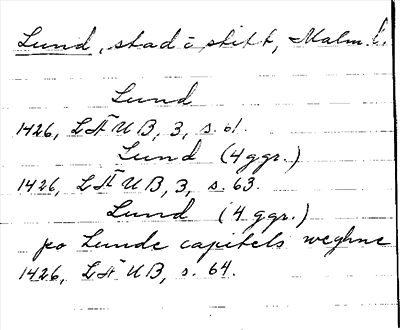 Lund, stad o stift, Malm. l.
Lund
1426, LÄUB, 3, s. 61.
Lund (4 ggr.)
1426, LÄUB, 3, s. 63.
Lund (4 ggr.)
po Lunde capitels weghne
1426, LÄUB, s. 64.